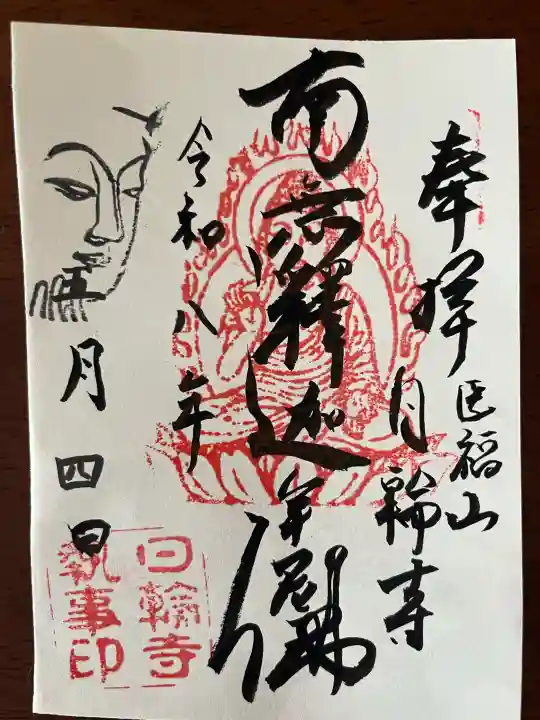 奉拝
福山
日輪寺
南無釋迦牟尼佛
令和八年
五月四日
日輪寺
執事印